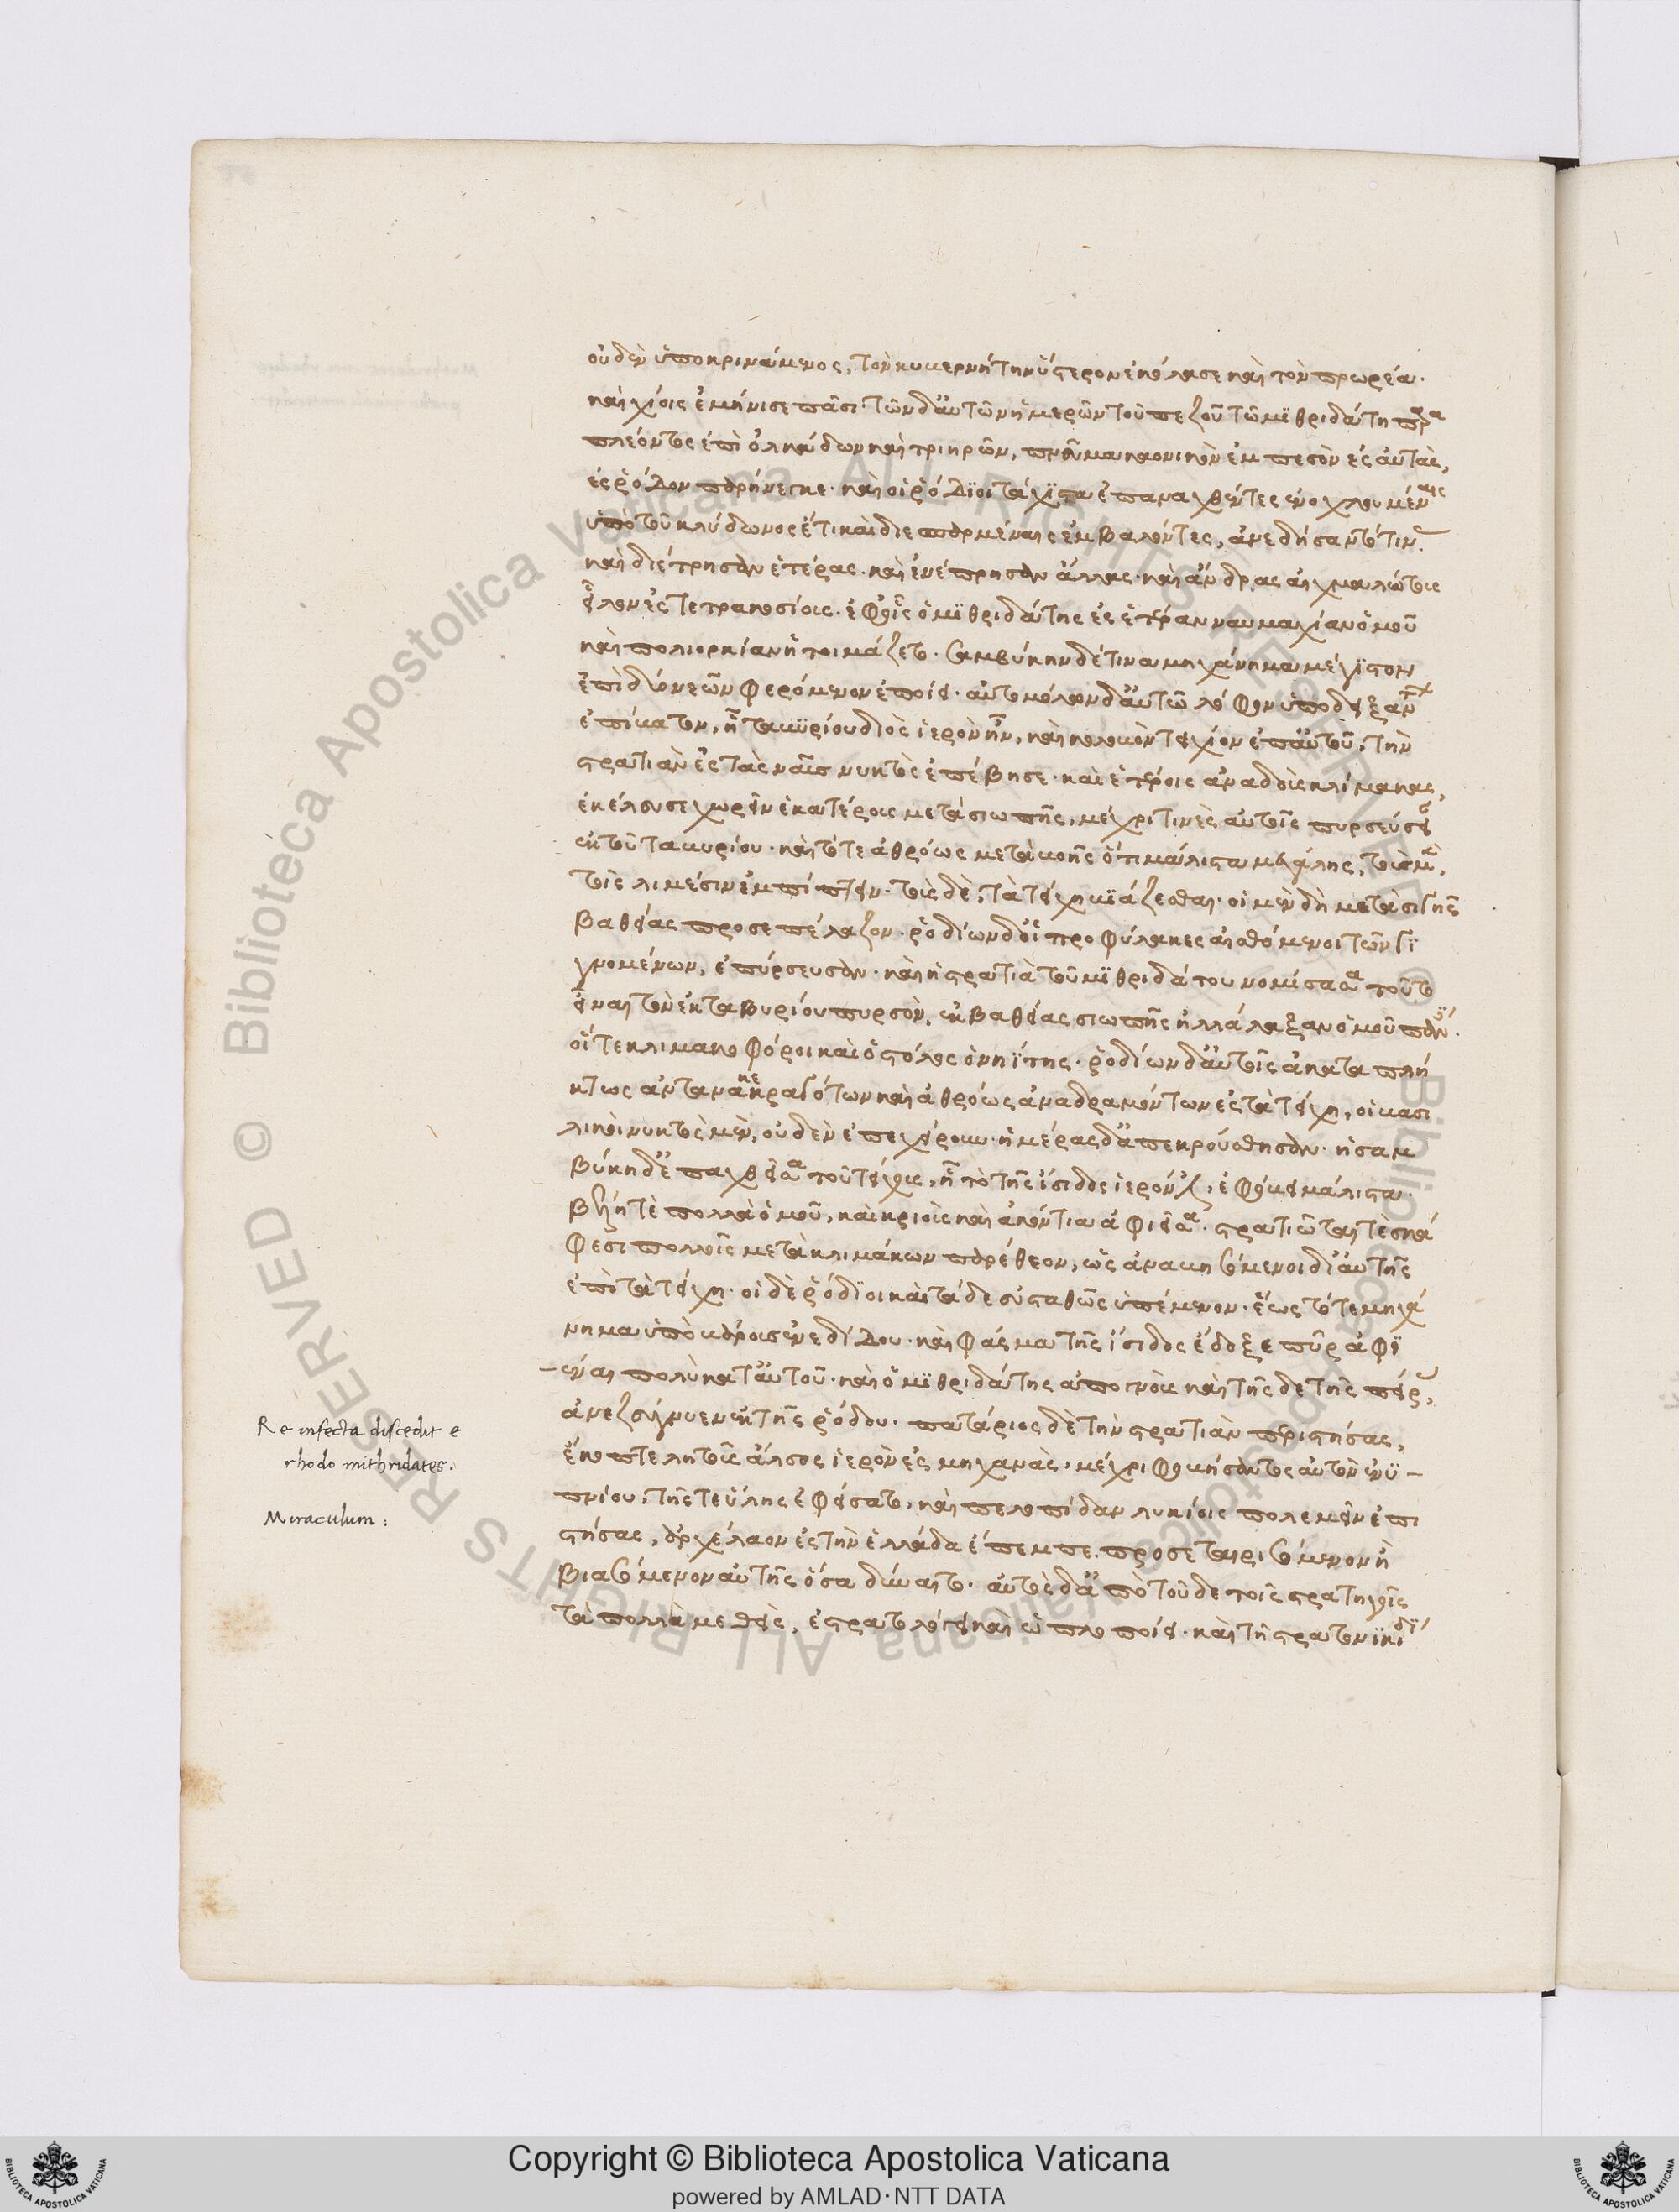 οὐδὲν ὑποκρινάμενος, τὸν κυβερνήτην ὕστερον ἐκόλασε καὶ τὸν πρωρέα.
καὶ χίοις ἐμήνισε πᾶσι. τῶν δ' αὐτῶν ἡμερῶν τοῦ πεζοῦ τῷ μιθριδάτῃ παρα
πλέοντος ἐπὶ ὁλκάδων καὶ τριηρῶν, πνεῦμα καονικὸν ἐμπεσὸν ἐς αὐτὰς,
ἐς ῥόδον παρήνεγκε. καὶ οἱ ῥόδιοι τάχιστα ἐπαναχθέντες ἐνοχλουμέναις
ὑπὸ τοῦ κλύδωνος ἔτι καὶ διεσπαρμέναις ἐμβαλόντες, ἀνεδήσαντό τινας
καὶ διέτρησαν ἑτέρας. καὶ ἐνέπρησαν ἄλλας. καὶ ἄνδρας αἰχμαλώτους
εἷλον ἐς τετρακοσίους. ἐφ' οἷς ὁ μιθριδάτης ἐς ἑτέραν ναυμαχίαν ὁμοῦ
καὶ πολιορκίαν ἡτοιμάζετο. σαμβύκην δέ τινα μηχάνημα μέγιστον
ἐπὶ δύο νεῶν φερόμενον ἐποίει. αὐτομόλων δ' αὐτῷ λόφον ὑποδειξάντων
ἐπίβατον, ᾗ ταβυρίου διὸς ἱερὸν ἦν, καὶ κολοβὸν τειχίον ἐπ' αὐτοῦ, τὴν
στρατιὰν ἐς τὰς ναῦς νυκτὸς ἐπέβησε. καὶ ἑτέροις ἀναδοὺς κλίμακας,
ἐκέλευσε χωρεῖν ἑκατέρους μετὰ σιωπῆς, μέχρι τινὲς αὐτοῖς πυρσεύσειαν
ἐκ τοῦ ταβυρίου. καὶ τότε ἀθρόως μετὰ βοῆς ὅτι μάλιστα μεγάλης, τοὺς μὲν,
τοῖς λιμέσιν ἐμπίπτειν. τοὺς δὲ, τὰ τείχη βιάζεσθαι. οἱ μὲν δὴ μετὰ σιγῆς
βαθείας προσεπέλαζον. ῥοδίων δ' οἱ προφύλακες αἰσθόμενοι τῶν γι
γνομένων, ἐπύρσευσαν. καὶ ἡ στρατιὰ τοῦ μιθριδάτου νομίσασα τοῦτο
εἶναι τὸν ἐκ ταβυρίου πυρσὸν, ἐκ βαθείας σιωπῆς ἠλλάλαξαν ὁμοῦ πάντες.
οἵ τε κλιμακοφόροι καὶ ὁ στόλος ὁ νηΐτης. ῥοδίων δ' αὐτοῖς ἀκαταπλή
κτως ἀντανακεκραγότων καὶ ἀθρόως ἀναδραμόντων ἐς τὰ τείχη, οἱ βασι
λικοὶ νυκτὸς μὲν, οὐδὲν ἐπεχείρουν. ἡμέρας δ' ἀπεκρούσθησαν. ἡ σαμ
βύκη δ' ἐπαχθεῖσα τοῦ τείχους, ᾗ τὸ τῆς ἴσιδος ἱερόν ἐστι, ἐφόβει μάλιστα.
βέλη τε πολλὰ ὁμοῦ, καὶ κριοὺς καὶ ἀκόντια ἀφιεῖσα. στρατιῶταί τε σκά
φεσι πολλοῖς μετὰ κλιμάκων παρέθεον, ὡς ἀναβησόμενοι δι' αὐτῆς
ἐπὶ τὰ τείχη. οἱ δὲ ῥόδιοι καὶ τάδε εὐσταθῶς ὑπέμενον. ἕως τό τε μηχά
νημα ὑπὸ βάρους ἐνεδίδου. καὶ φάσμα τῆς ἴσιδος ἔδοξε πῦρ ἀφι
έναι πολὺ κατ' αὐτοῦ. καὶ ὁ μιθριδάτης ἀπογνοὺς καὶ τῆσδε τῆς πείρας,
ἀνεζεύγνυεν ἐκ τῆς ῥόδου. πατάροις δὲ τὴν στρατιὰν περιστήσας,
ἔκοπτε λητοῦς ἄλσος ἱερὸν ἐς μηχανὰς. μέχρι φοβήσαντος αὐτὸν ἐνυ
πνίου, τῆς τε ὕλης ἐφείσατο, καὶ πελοπίδαν λυκίοις πολεμεῖν ἐπι
στήσας, ἀρχέλαον ἐς τὴν ἑλλάδα ἔπεμπε προσεταιρισόμενον ἢ
βιασόμενον αὐτῆς ὅσα δύναιτο. αὐτὸς δ' ἀπὸ τοῦδε τοῖς στρατηγοῖς
τὰ πολλὰ μεθεὶς, ἐστρατολόγει καὶ ὡπλοποίει. καὶ τῇ στρατονίκῃ δι
Re infecta discedit e
rhodo mithridates.
Miraculum:
© Biblioteca Apostolica Vaticana ALL RIGHTS RESERVED © Biblioteca Apostolica Vaticana ALL RIGHTS RESERVED
Copyright © Biblioteca Apostolica Vaticana
powered by AMLAD·NTT DATA
BIBLIOTECA APOSTOLICA VATICANA
BIBLIOTECA APOSTOLICA VATICANA